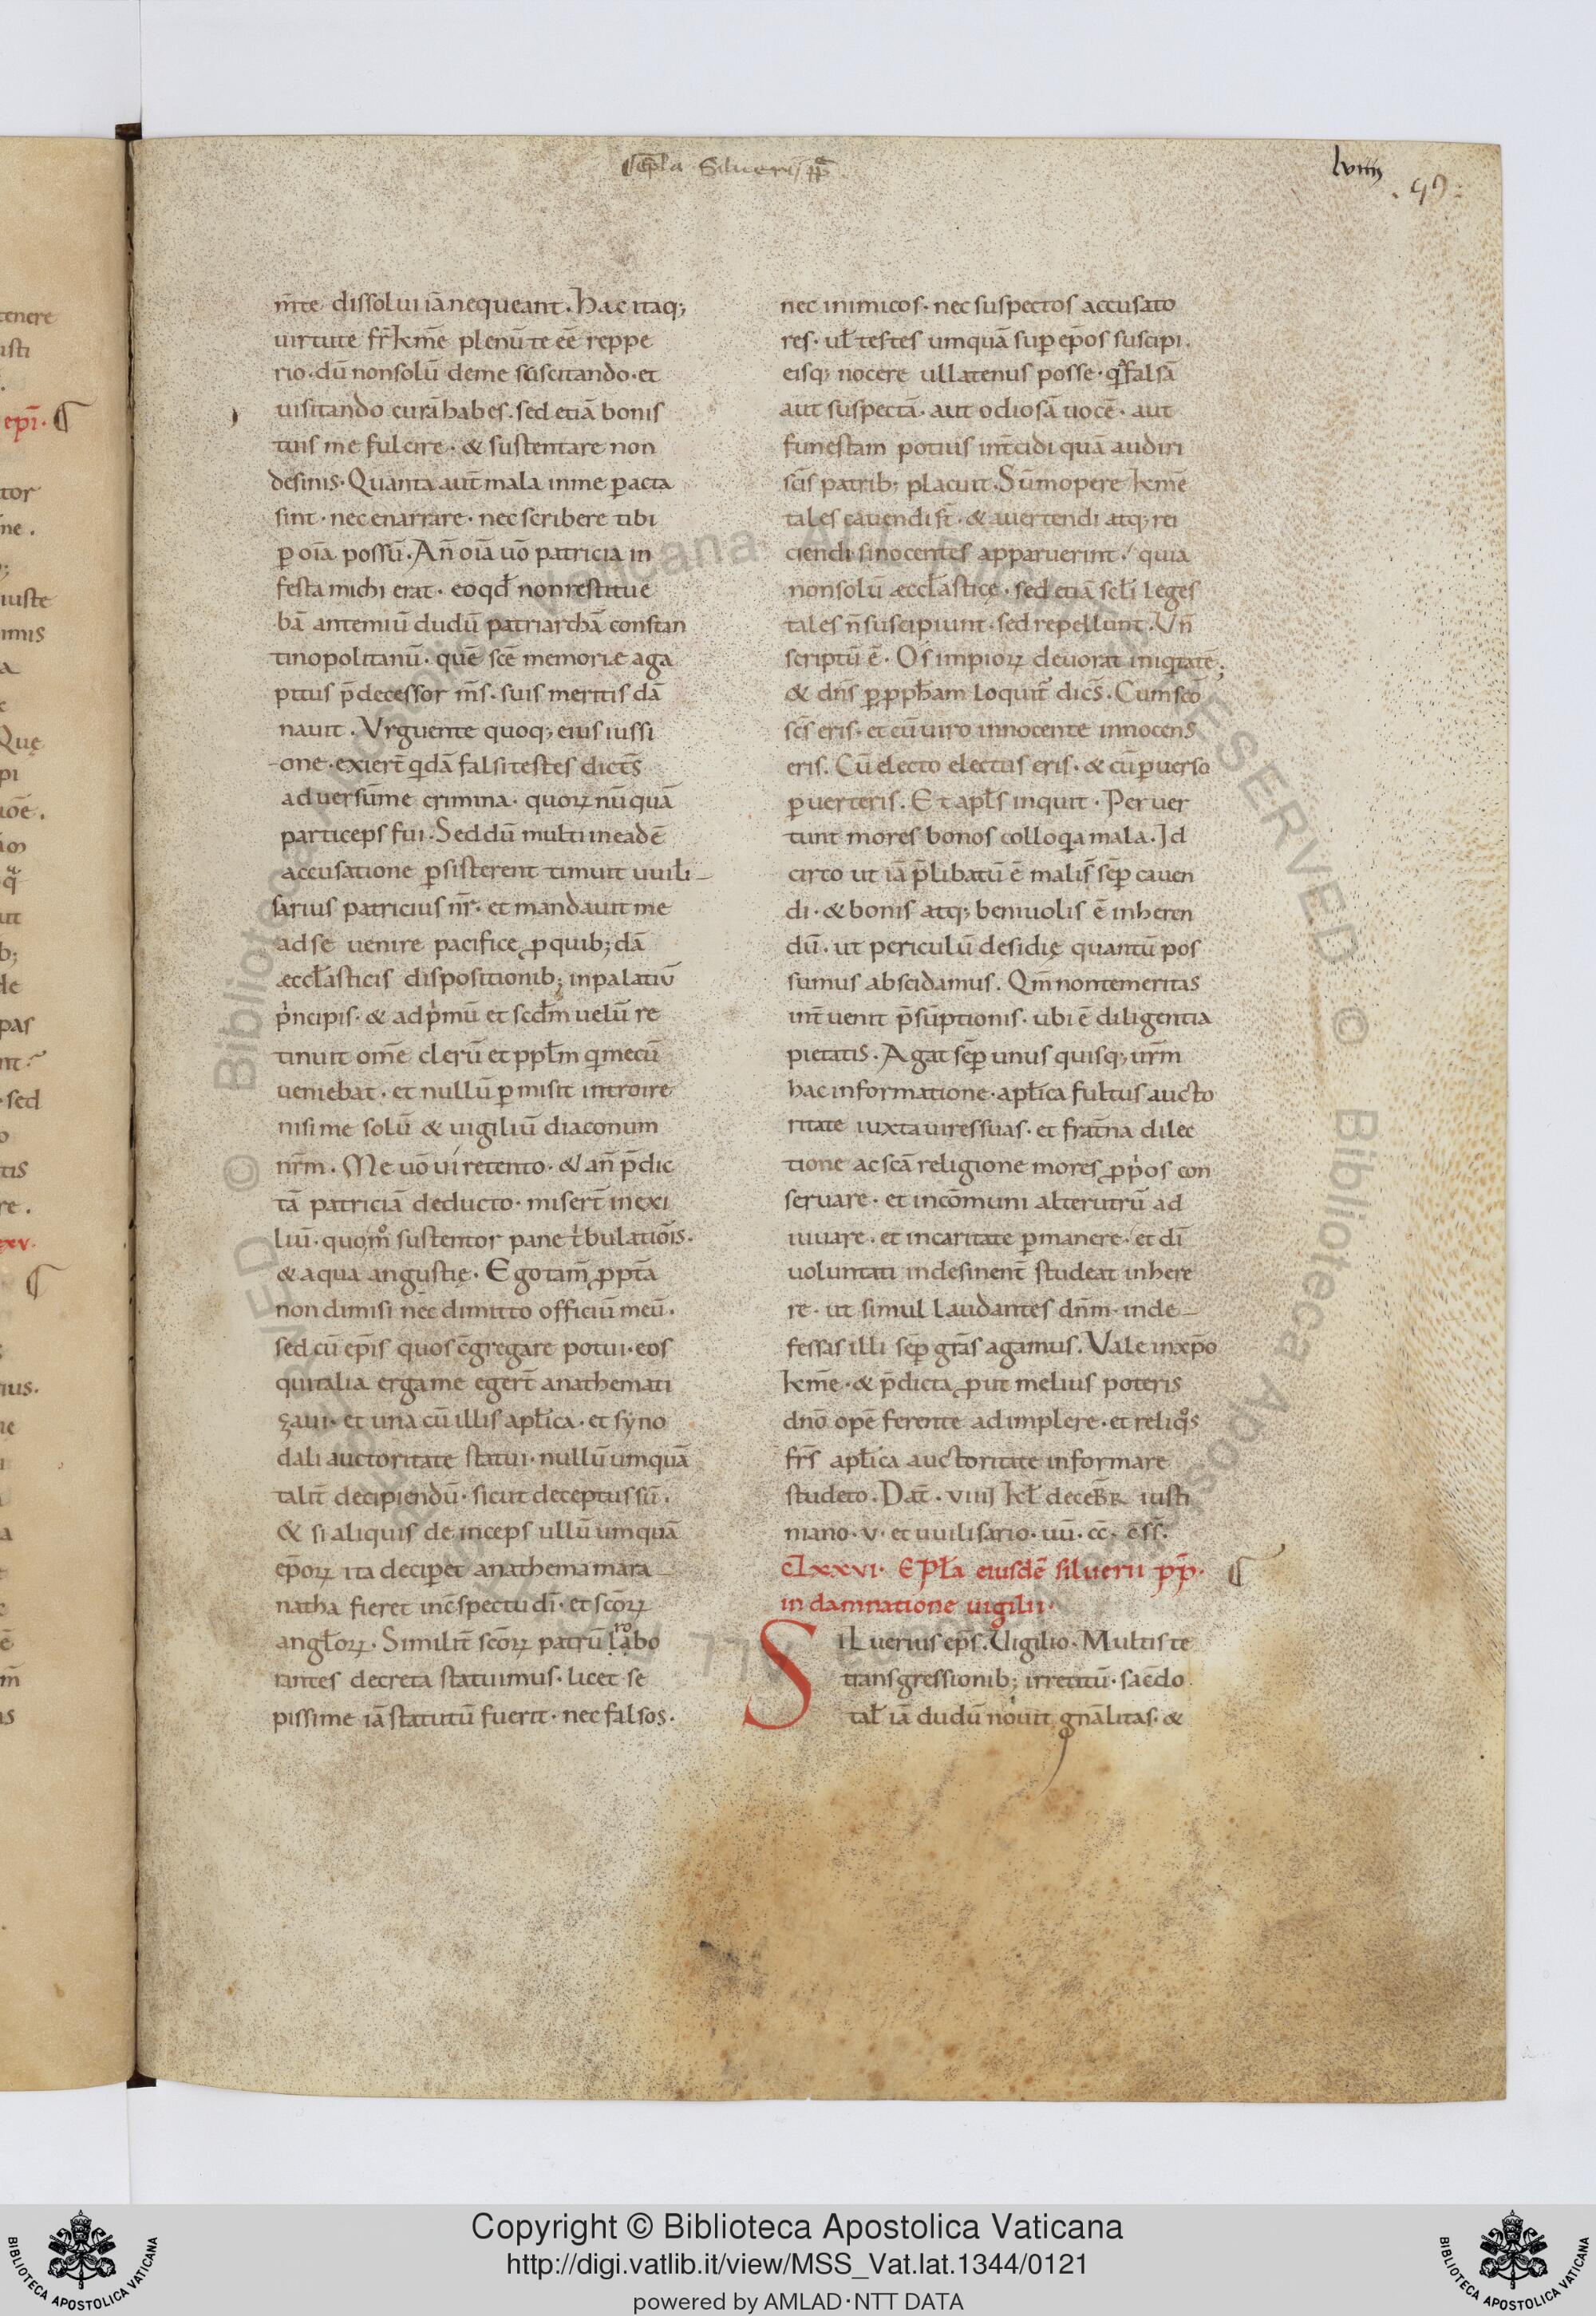 Epła Siluerii pp̄
lviiij
.59.
tenere
isti
epī. ¶
tor
me.
iuste
imis
a
Quę
pi
uōe.
q̈
ut
b;
de
pas
nt
sed
o
tis
re.
xxv.
¶
ius.
ne
ı
a
ē
m̄
as
m̄te dissolui iā nequeant. Hac itaq;
uirtute fr̄ km̄e plenū te eē reppe
rio. dū non solū de me suscitando. et
uisitando curā habes. sed etiā bonis
tuis me fulcire. & sustentare non
desinis. Quanta aūt mala in me ꝑacta
sint. nec enarrare. nec scribere tibi
ꝑ oīa possū. An̄ oīa uō patricia in
festa michi erat. eo qđ non restitue
bā antemiū dudū patriarchā constan
tinopolitanū. quē scē memorie aga
pitus p̄decessor m̄s. suis meritis dā
nauit. Vrguente quoq; eius iussi
one. exiert̄ qdā falsi testes dict̄s
aduersū me crimina. quoꝝ nūquā
particeps fui. Sed dū multi in eadē
accusatione ꝑsisterent timuit uuili
sarius patricius nr̄. et mandauit me
ad se uenire pacifice ꝓ quib; dā
æccłasticis dispositionib; in palatiū
pncipis. & ad pmū et scđm uelū re
tinuit om̄e clerū et ppłm q mecū
ueniebat. et nullū ꝑmisit introire
nisi me solū & uigiliū diaconum
nr̄m. Me uō ui retento. & an̄ p̄dic
tā patriciā deducto. misert̄ in exi
liū. quom̊ sustentor pane tbulatiōis.
& aqua angustię. Ego tam̄ ꝓpt̄a
non dimisi nēc dimitto officiū meū.
sed cū ep̄is quos c̄gregare potui. eos
qui talia erga me egert̄ anathemati
zaui. et una cū illis apłica. et syno
dali auctoritate statui. nullū umquā
talit̄ decipiendū. sicut deceptus sū.
& si aliquis deinceps ullū umquā
ep̄oꝝ ita decipet̄ anathema mara
natha fieret in c̄spectu dī. et scōꝝ
angłoꝝ. Similit̄ scōꝝ patrū labo
rantes decreta statuimus. licet se
pissime iā statutū fuerit. nec falsos.
nec inimicos. nec suspectos accusato
res. uł testes umquā suꝑ ep̄os suscipi.
eisq; nocere ullatenus posse. q falsā
aut suspectā. aut odiosā uocē. aut
funestam potius int̄cidi quā audiri
sc̄is patrib; placuit. Sūmopere km̄e
tales cauendi st̄. & auertendi atq; rei
ciendi si nocentes apparuerint. quia
non solū æccłasticę. sed etiā scłi leges
tales n̄ suscipiunt. sed repellunt. Un̄
scriptū ē. Os impioꝝ deuorat iniqtatē;
& dn̄s ꝑ ppħam loquit̄ dic̄s. Cum scō
sc̄s eris. et cū uiro innocente innocens
eris. Cū electo electus eris. & cū ꝑuerso
ꝑuerteris. Et apłs inquit. Peruer
tunt mores bonos colloqa mala. Id
circo ut iā p̄libatū ē malis sēꝑ cauen
di. & bonis atq; beniuolis ē inheren
dū. ut periculū desidię quantū pos
sumus abscidamus. Qm̄ non temeritas
int̄uenit p̄sūptionis. ubi ē diligentia
pietatis. Agat sēꝑ unus quisq; ur̄m
hac informatione. apłica fultus aucto
ritate iuxta uires suas. et frat̄na dilec
tione ac scā religione mores ꝓpos con
seruare. et in cōmuni alterutrū ad
iuuare. et in caritate ꝑmanere. et dī
uoluntati indesinent̄ studeat inhere
re. ut simul laudantes dn̄m. inde
fessas illi sēꝑ gr̄as agamus. Vale in xp̄o
km̄e. & p̄dicta ꝓut melius poteris
dnō opē ferente adimplere. et reliqos
fr̄s apłica auctoritate informare
studeto. Dat̄. viiij kł decēbr̄ iusti
niano. v. et uuilisario. uū. cc̄. c̄ss̄.
clxxvi. Epła eiusdē siluerii pp̄.
in damnatione uigilii. ¶
Siluerius ep̄s. Uigilio. Multis te
transgressionib; irretitū. sacēdo
tał iā dudū nouit gnālitas. &
Copyright © Biblioteca Apostolica Vaticana
http://digi.vatlib.it/view/MSS_Vat.lat.1344/0121
powered by AMLAD·NTT DATA
BIBLIOTECA APOSTOLICA VATICANA
BIBLIOTECA APOSTOLICA VATICANA